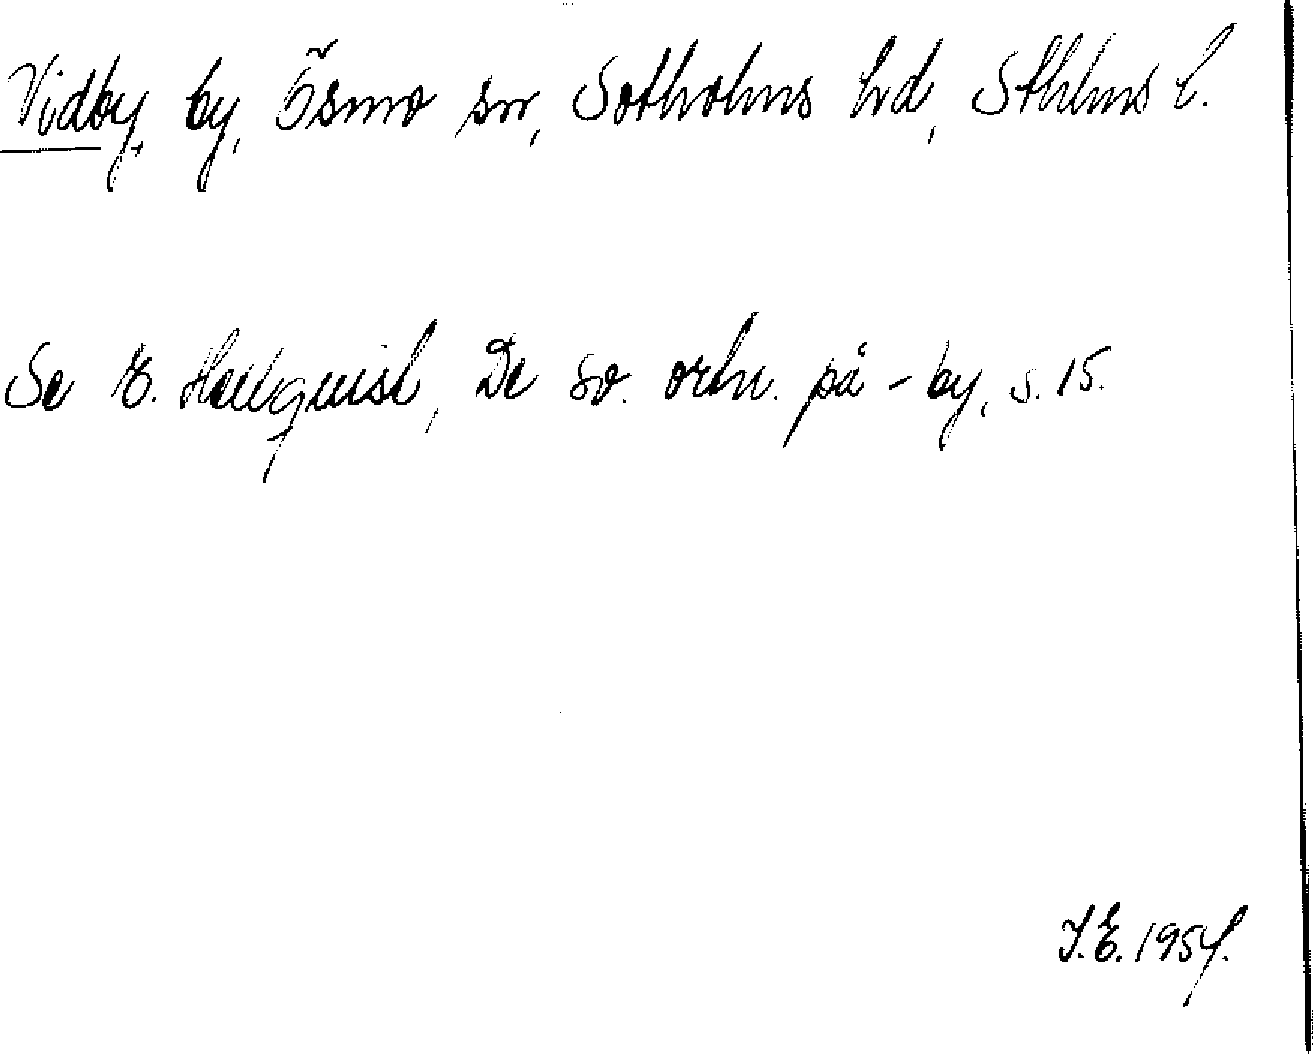 Vidby, by, Ösmo sn, Sotholms hd, Sthlms l.
Se E. Hellquist, De sv. ortn. på -by, s. 15.
I.E. 1954.